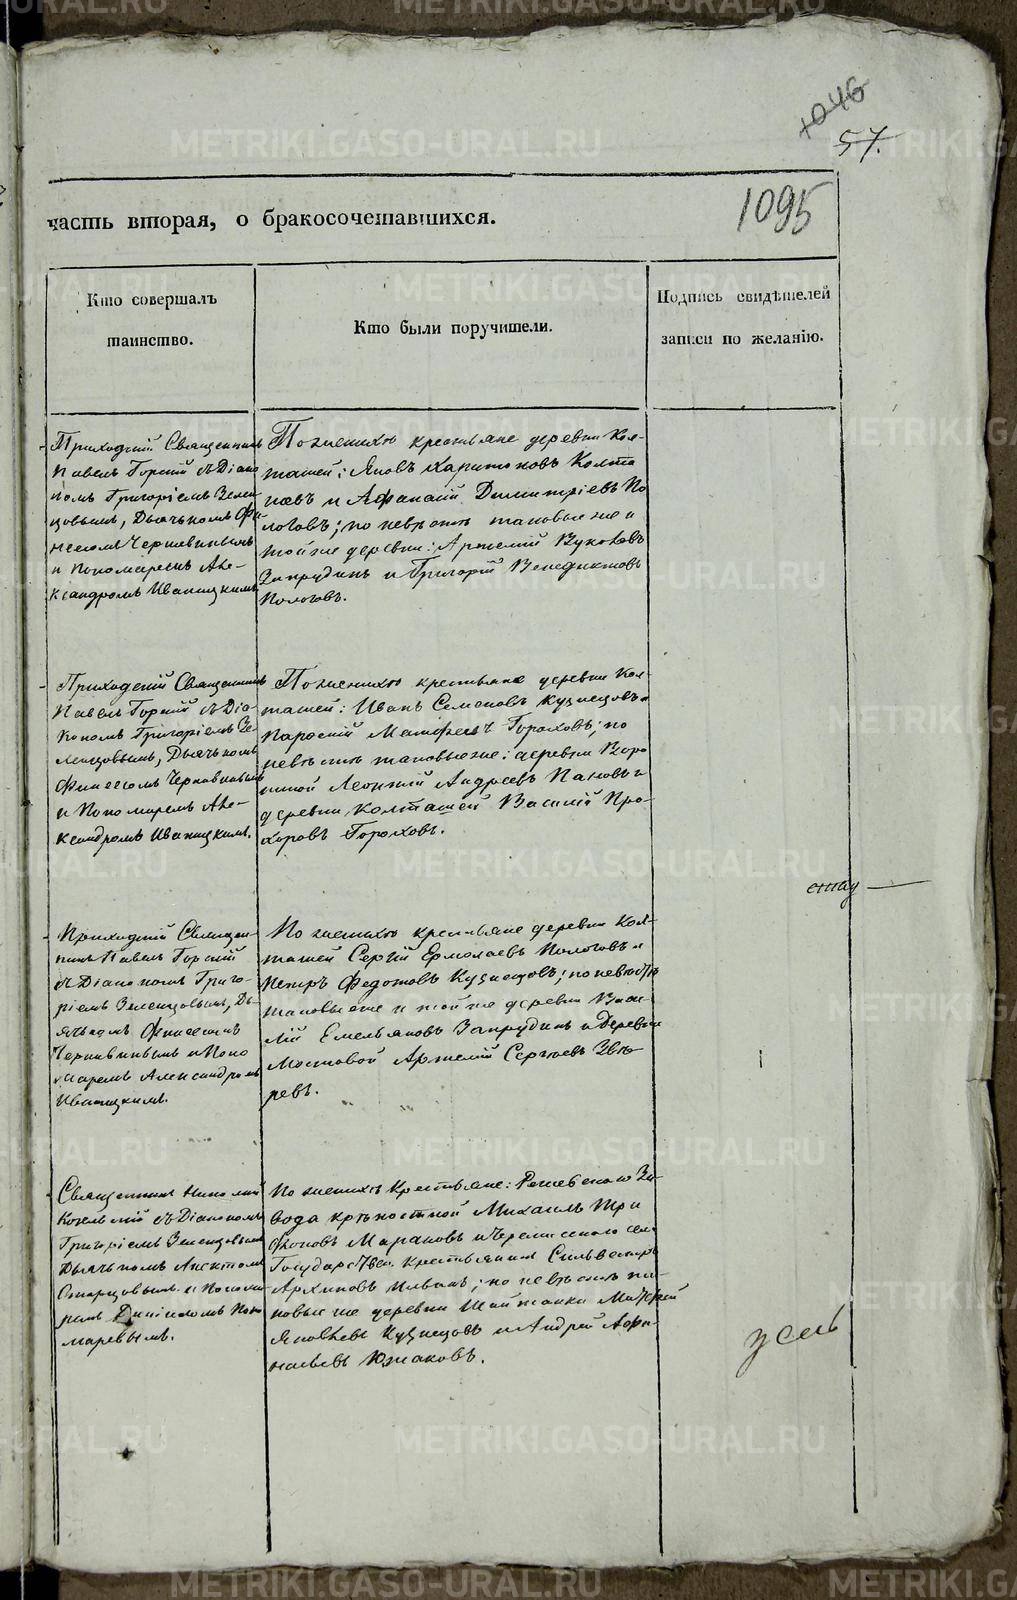 1046
57.
1095
часть вторая, о бракосочетавшихся.
Кто совершалъ
таинство.
Кто были поручители.
Подпись свидѣтелей
записи по желанію.
Приходскій Священникъ
Павелъ Горный съ Діако
номъ Григоріемъ Зелен
цовымъ, Дьячькомъ Фи
неесомъ Чернавинымъ
и Пономаремъ Але-
ксандромъ Иваницкимъ
По женихѣ крестьяне деревни Кол-
ташей: Яковъ Харитоновъ Колта
и Афанасій Димитріевъ По
логовъ; по невѣстѣ таковые же и
той же деревни: Артемій
Запрудинъ и Григорій Венедиктовъ
Пологовъ.
Приходскій Священникъ
Павелъ Горный съ Діа-
кономъ Григоріемъ Зе-
ленцовымъ, Дьячькомъ
Финеесомъ Чернавинымъ
и Пономаремъ Але-
ксандромъ Иваницкимъ.
По женихѣ крестьяне деревни Кол-
ташей: Иванъ Семеновъ Кузнецовъ и
Матфеевъ Гороховъ; по
невѣстѣ таковые же: деревни Воро
ниной Леонтій Андреевъ Пановъ и
деревни Колташей Василій Про-
хоровъ Гороховъ.
стау
Приходскій Священ-
никъ Павелъ Горный
съ Діакономъ Григо-
ріемъ Зеленцовымъ, Дь-
ячькомъ Финеесомъ
Чернавинымъ и Поно
маремъ Александромъ
Иваницкимъ.
По женихѣ крестьяне деревни Кол-
ташей Сергій Ермолаевъ Пологовъ и
Петръ Федотовъ Кузнецовъ; по невѣстѣ
таковые же и той же деревни Васи-
лій Емельяновъ Запрудинъ и Деревни
Мостовой Артемій Сергѣевъ Звѣ-
ревъ.
Священникъ Николай
съ Діакономъ
Григоріемъ Зеленцовымъ
Дьячькомъ
Старцовымъ и Понома-
ремъ Діонисіемъ Поно
маревымъ.
По женихѣ Крестьяне: Режевскаго За-
вода крѣпостной Михаилъ Три
фоновъ Мараковъ и Черемисскаго села
Государственный Крестьянинъ Сильвестръ
Архиповъ; по невѣстѣ та-
ковые же деревни Шайтанки Матфей
Яковлевъ Кузнецовъ и Андрей Афа-
насьевъ Южаковъ.